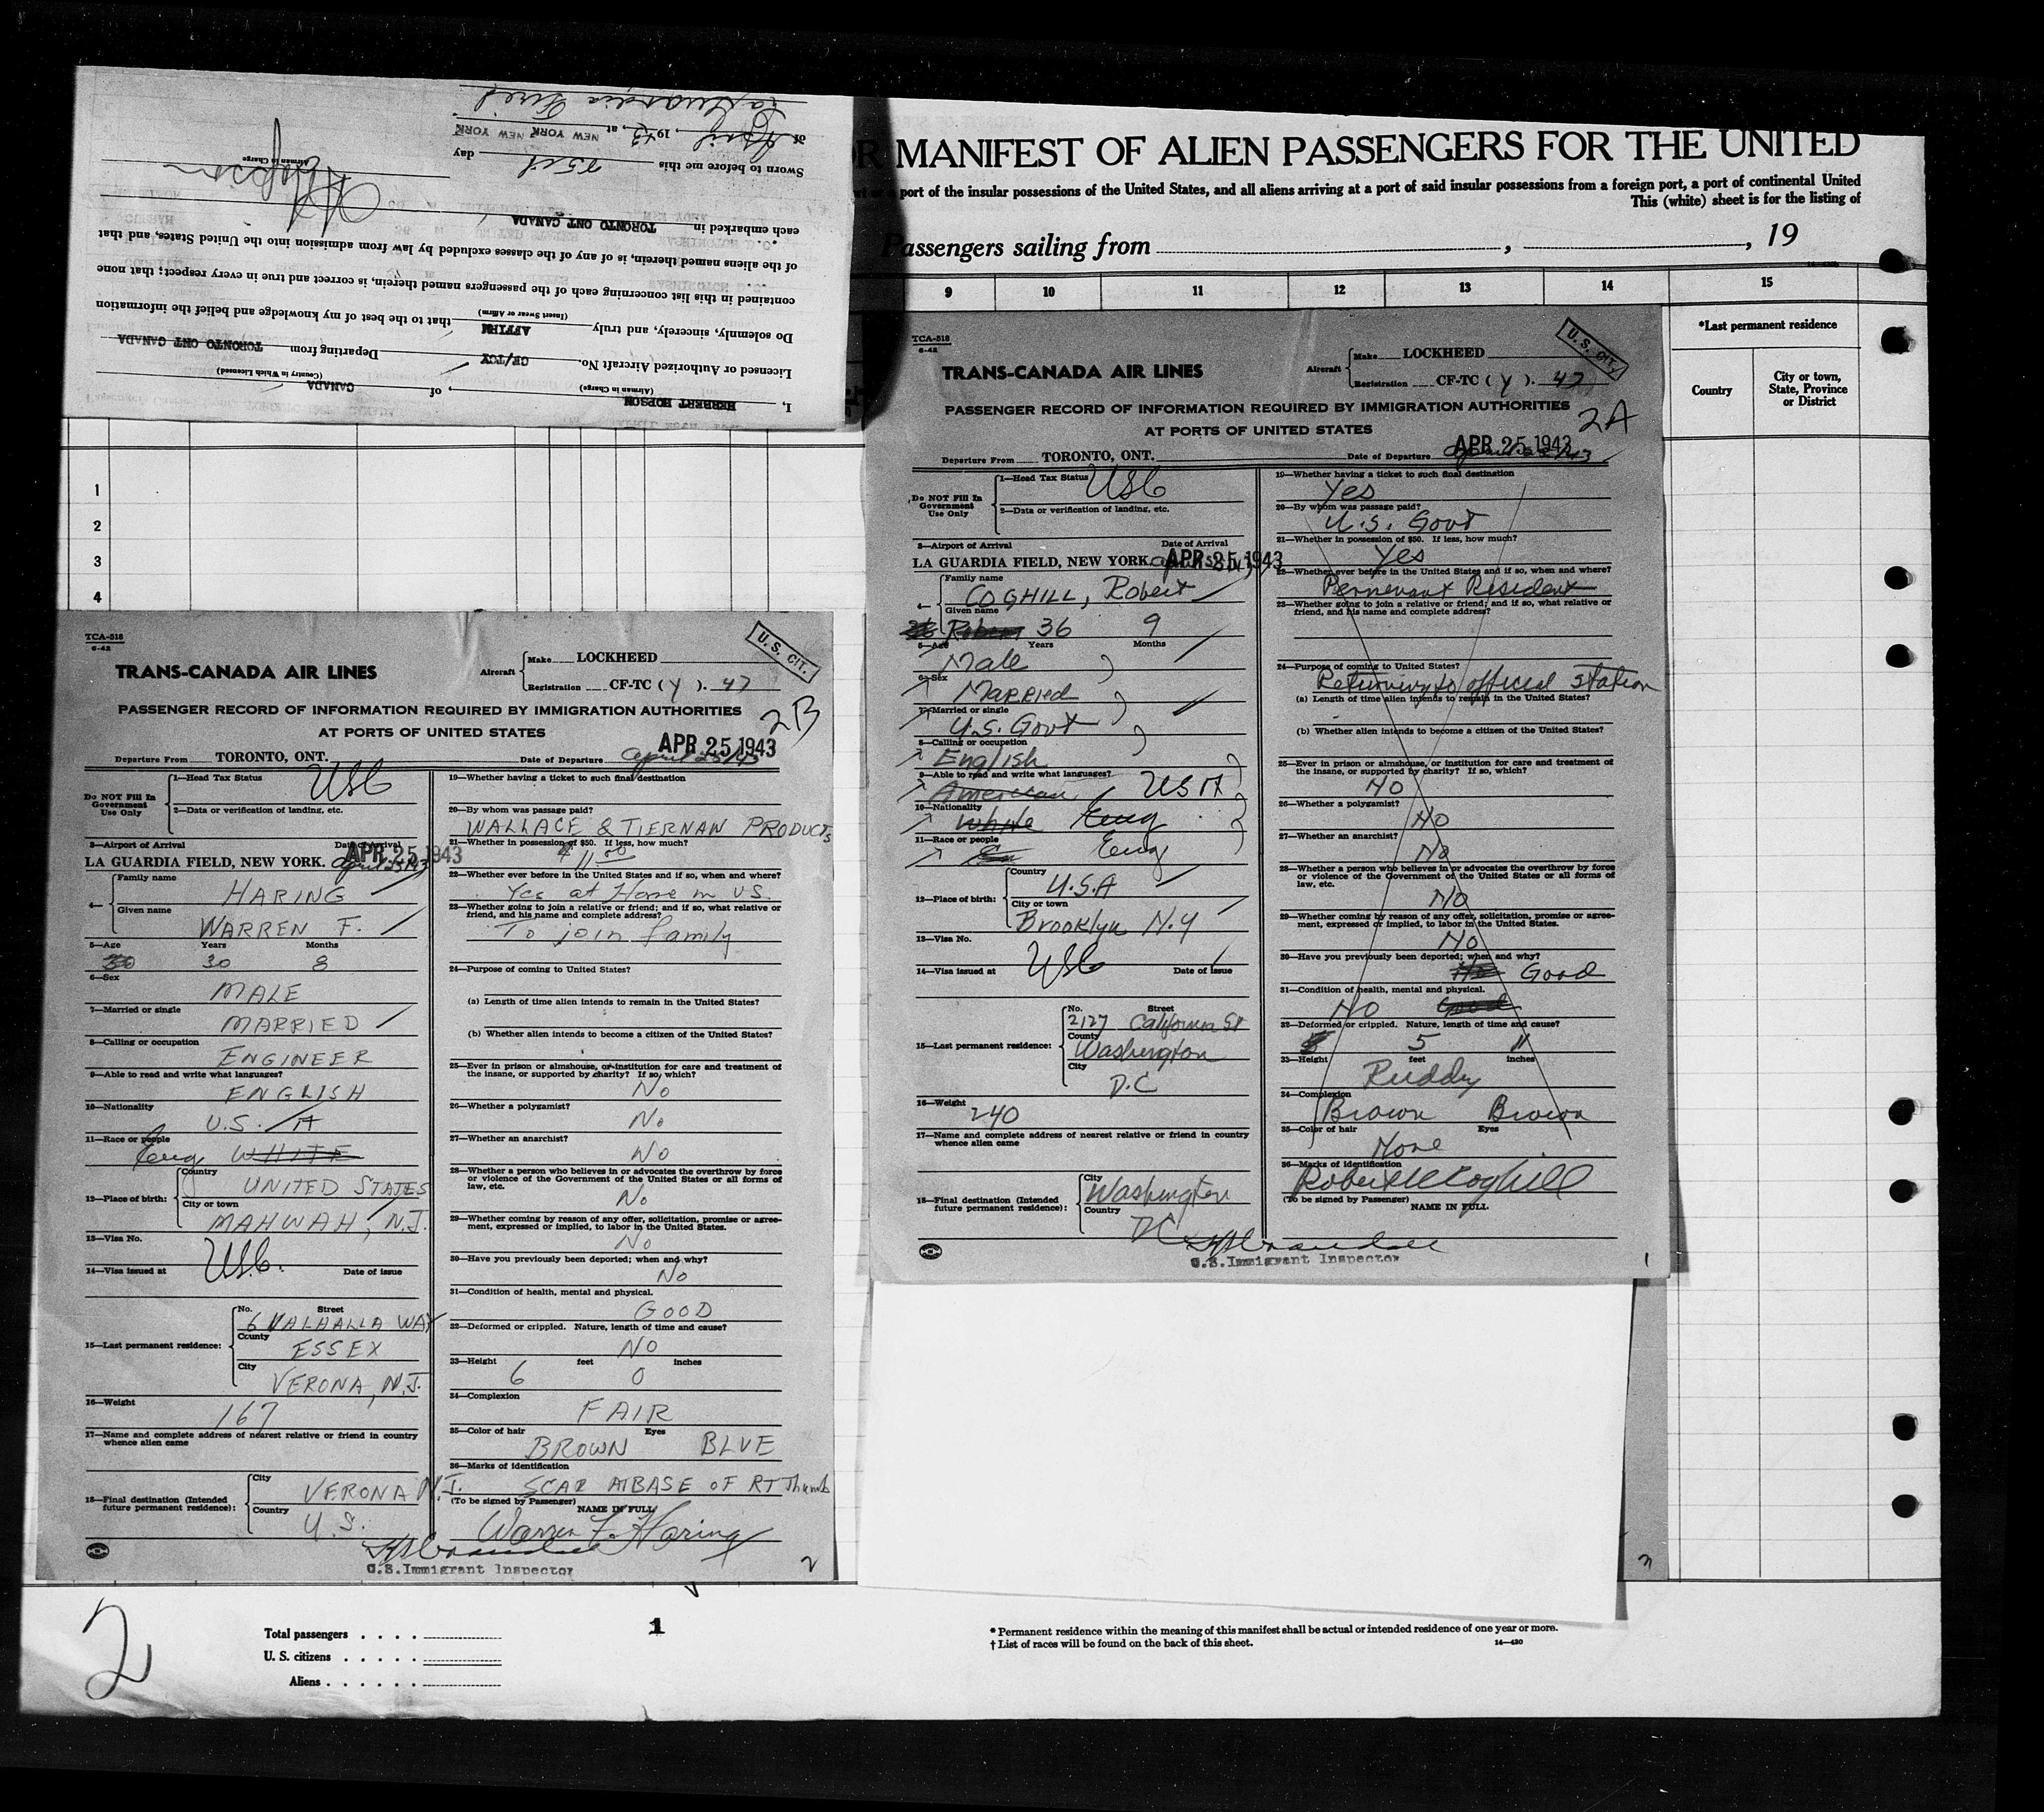 OR MANIFEST OF ALIEN PASSENGERS FOR THE UNITED
a port of the insular possessions of the United States, and all aliens arriving at a port of said insular possessions from a foreign port, a port of continental United
This (white) sheet is for the listing of
Passengers sailing from , , 19
9 10 11 12 13 14 15
*Last permanent residence
Country
City or town, State, Province or District
I, HERBERT HOPSON, of CANADA
(Airman in Charge) (Country in Which Licensed)
Licensed or Authorized Aircraft No. CF/TCX Departing from TORONTO ONT CANADA
Do solemnly, sincerely, and truly AFFIRM that to the best of my knowledge and belief the information
(Insert Swear or Affirm)
contained in this list concerning each of the passengers named therein, is correct and true in every respect; that none
of the aliens named therein, is of any of the classes excluded by law from admission into the United States, and that
each embarked in TORONTO ONT CANADA
Hopson
Airman in Charge
Sworn to before me this 25th day
of April, 1943, at NEW YORK NEW YORK
LaGuardia Field
1
2
3
4
TCA-518
6-42
U. S. CIT.
TRANS-CANADA AIR LINES
Aircraft Make LOCKHEED
Registration CF-TC (Y). 47
PASSENGER RECORD OF INFORMATION REQUIRED BY IMMIGRATION AUTHORITIES
2B
AT PORTS OF UNITED STATES
APR 25 1943
Departure From TORONTO, ONT. Date of Departure April 25/43
Do NOT Fill In Government Use Only
1—Head Tax Status USC
2—Data or verification of landing, etc.
3—Airport of Arrival Date of Arrival
LA GUARDIA FIELD, NEW YORK. April 25/43 APR 25 1943
4— Family name HARING
Given name WARREN F.
5—Age Years Months
30 30 8
6—Sex
MALE
7—Married or single
MARRIED
8—Calling or occupation
ENGINEER
9—Able to read and write what languages?
ENGLISH
10—Nationality
U.S.A
11—Race or people
Eng WHITE
12—Place of birth: Country UNITED STATES
City or town MAHWAH, N.J.
13—Visa No.
USC.
14—Visa issued at Date of issue
15—Last permanent residence: No. Street
6 VALHALLA WAY
County
ESSEX
City
VERONA, N.J.
16—Weight
167
17—Name and complete address of nearest relative or friend in country whence alien came
18—Final destination (Intended future permanent residence): City VERONA N.J.
Country U.S.
19—Whether having a ticket to such final destination
20—By whom was passage paid?
WALLACE & TIERNAN PRODUCTS
21—Whether in possession of $50. If less, how much?
$ 11.00
22—Whether ever before in the United States and if so, when and where?
Yes at Home in US.
23—Whether going to join a relative or friend; and if so, what relative or friend, and his name and complete address?
To join family
24—Purpose of coming to United States?
(a) Length of time alien intends to remain in the United States?
(b) Whether alien intends to become a citizen of the United States?
25—Ever in prison or almshouse, or institution for care and treatment of the insane, or supported by charity? If so, which?
No
26—Whether a polygamist?
No
27—Whether an anarchist?
No
28—Whether a person who believes in or advocates the overthrow by force or violence of the Government of the United States or all forms of law, etc.
No
29—Whether coming by reason of any offer, solicitation, promise or agreement, expressed or implied, to labor in the United States.
No
30—Have you previously been deported; when and why?
No
31—Condition of health, mental and physical.
GOOD
32—Deformed or crippled. Nature, length of time and cause?
NO
33—Height feet inches
6 0
34—Complexion
FAIR
35—Color of hair Eyes
BROWN BLUE
36—Marks of identification
SCAR AT BASE OF RT Thumb
(To be signed by Passenger) NAME IN FULL
Warren F. Haring
U.S. Immigrant Inspector
2
TCA-518
6-42
U. S. CIT.
TRANS-CANADA AIR LINES
Aircraft Make LOCKHEED
Registration CF-TC (Y). 47
PASSENGER RECORD OF INFORMATION REQUIRED BY IMMIGRATION AUTHORITIES
2A
AT PORTS OF UNITED STATES
APR 25 1943
Departure From TORONTO, ONT. Date of Departure April 25/43
Do NOT Fill In Government Use Only
1—Head Tax Status USC
2—Data or verification of landing, etc.
3—Airport of Arrival Date of Arrival
LA GUARDIA FIELD, NEW YORK. APR 25 1943
4— Family name
COGHILL, Robert
Given name
Robert 36 9
5—Age Years Months
Male
6—Sex
Married
7—Married or single
U.S. Govt
8—Calling or occupation
English
9—Able to read and write what languages?
American USA
10—Nationality
White Eng
11—Race or people
Eng
12—Place of birth: Country U.S.A
City or town Brooklyn N.Y
13—Visa No.
USC
14—Visa issued at Date of issue
15—Last permanent residence: No. Street
2127 California St
County
Washington
City
D.C
16—Weight
240
17—Name and complete address of nearest relative or friend in country whence alien came
18—Final destination (Intended future permanent residence): City Washington
Country DC
U.S. Immigrant Inspector
19—Whether having a ticket to such final destination
Yes
20—By whom was passage paid?
U.S. Govt
21—Whether in possession of $50. If less, how much?
Yes
22—Whether ever before in the United States and if so, when and where?
Permenant Resident
23—Whether going to join a relative or friend; and if so, what relative or friend, and his name and complete address?
24—Purpose of coming to United States?
Returning to official station
(a) Length of time alien intends to remain in the United States?
(b) Whether alien intends to become a citizen of the United States?
25—Ever in prison or almshouse, or institution for care and treatment of the insane, or supported by charity? If so, which?
NO
26—Whether a polygamist?
NO
27—Whether an anarchist?
No
28—Whether a person who believes in or advocates the overthrow by force or violence of the Government of the United States or all forms of law, etc.
NO
29—Whether coming by reason of any offer, solicitation, promise or agreement, expressed or implied, to labor in the United States.
NO
30—Have you previously been deported; when and why?
No Good
31—Condition of health, mental and physical.
NO Good
32—Deformed or crippled. Nature, length of time and cause?
5 11
33—Height feet inches
Ruddy
34—Complexion
Brown Brown
35—Color of hair Eyes
None
36—Marks of identification
Robert M Coghill
(To be signed by Passenger) NAME IN FULL.
1
3
2
Total passengers
U. S. citizens
Aliens
1
* Permanent residence within the meaning of this manifest shall be actual or intended residence of one year or more.
† List of races will be found on the back of this sheet. 14—420